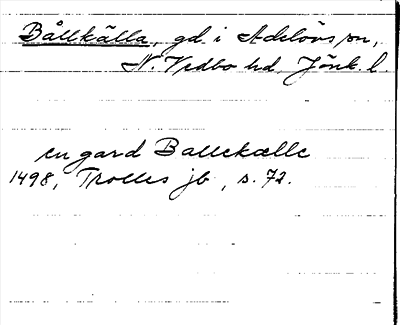 Bållkälla, gd. i Adelövs sn,
N. Vedbo hd Jönk. l.
en gard Ballekælle
1498, Trolles jb, s. 72.